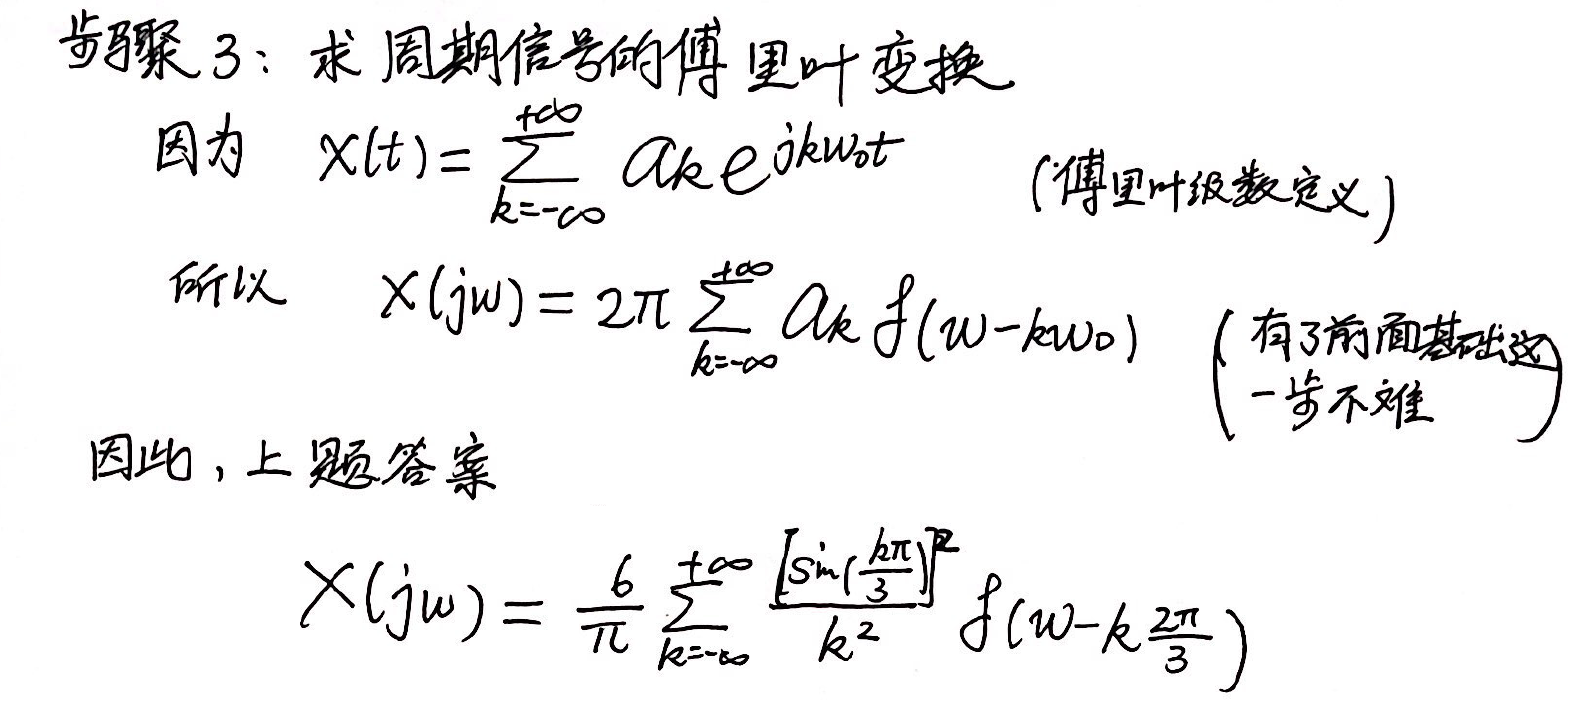 步骤3：求周期信号的傅里叶变换
因为 x(t)=∑_{k=-∞}^{+∞} a_k e^{jkω₀t} （傅里叶级数定义）
所以 X(jω)=2π∑_{k=-∞}^{+∞} a_k δ(ω-kω₀) （有了前面基础这
一步不难）
因此，上题答案
X(jω)=\frac{6}{π}∑_{k=-∞}^{+∞} \frac{[sin(\frac{kπ}{3})]^2}{k^2} δ(ω-k\frac{2π}{3})